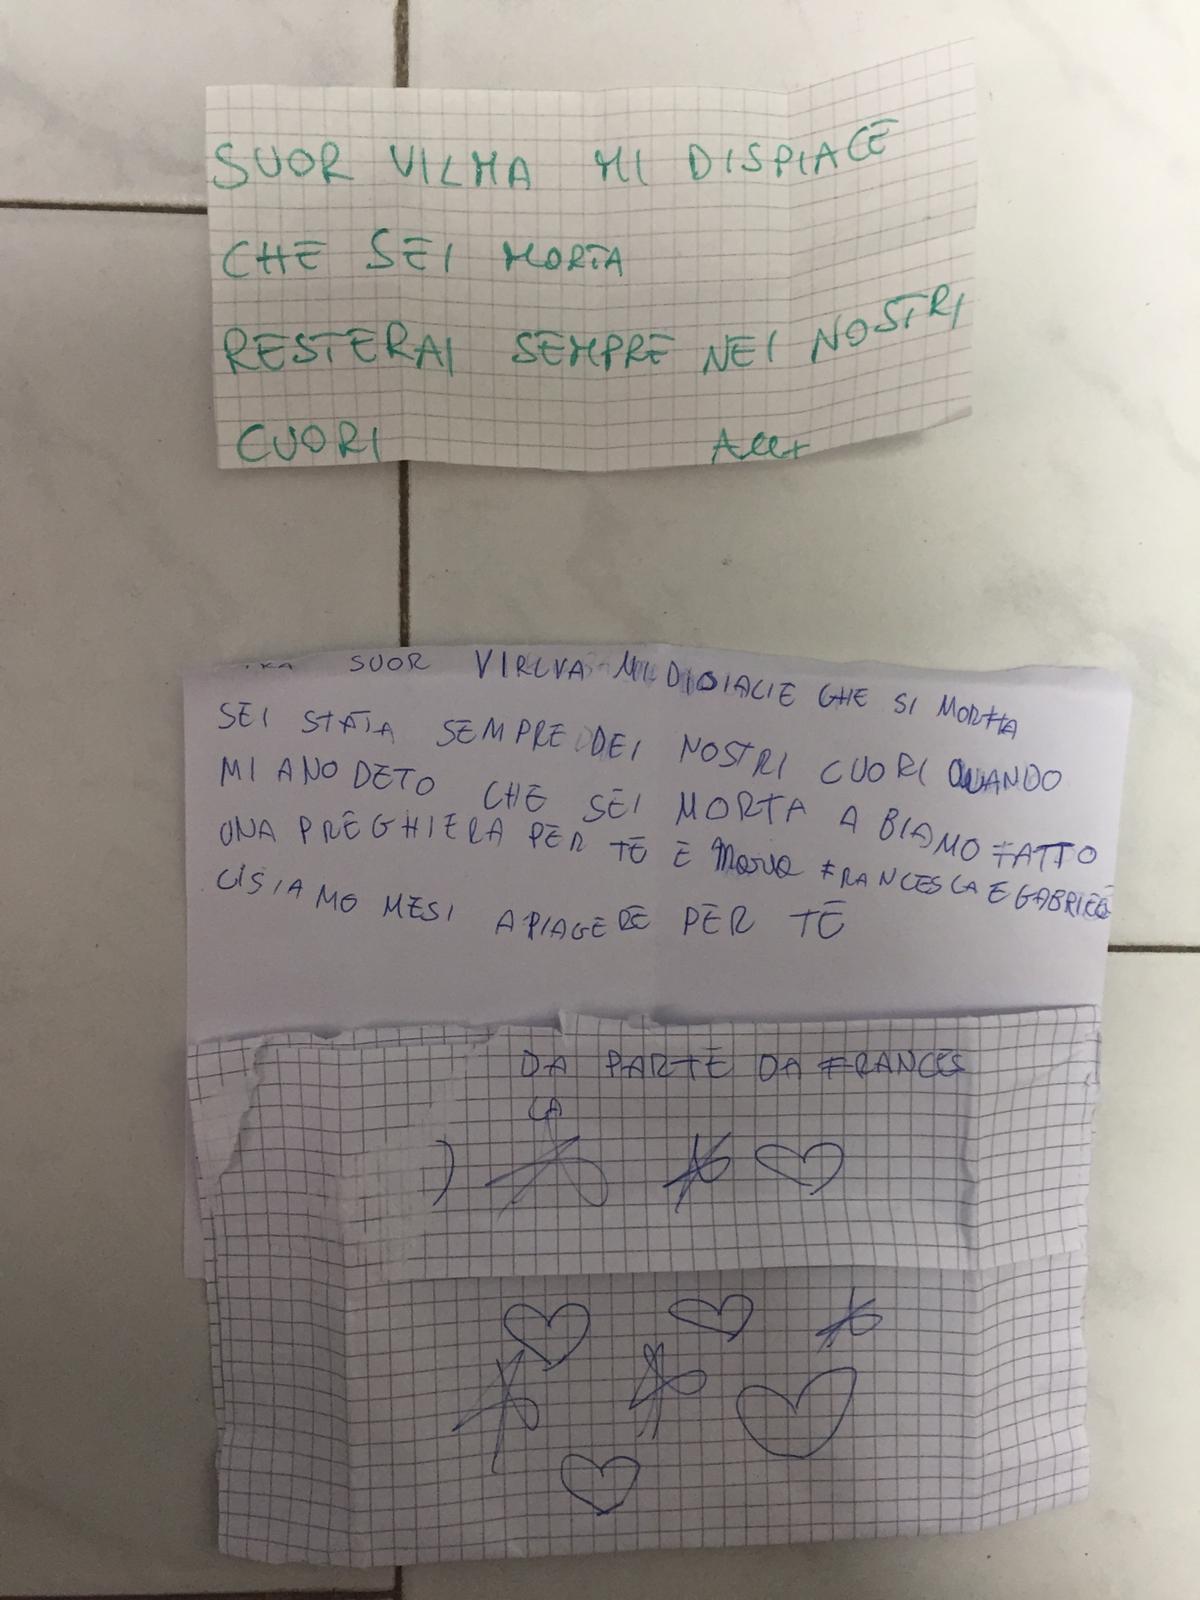 SUOR VILMA MI DISPIACE
CHE SEI MORTA
RESTERAI SEMPRE NEI NOSTRI
CUORI
SUOR VIRLVA MI DIOIACIE CHE SI MORTTA
SEI STATA SEMPRE DEI NOSTRI CUORI QUANDO
MI ANO DETO CHE SEI MORTA A BIAMO FATTO
UNA PREGHIERA PER TE E MARIA FRANCESCA E GABRIELE
CISIAMO MESI APIAGERE PER TE
DA PARTE DA FRANCES
CA